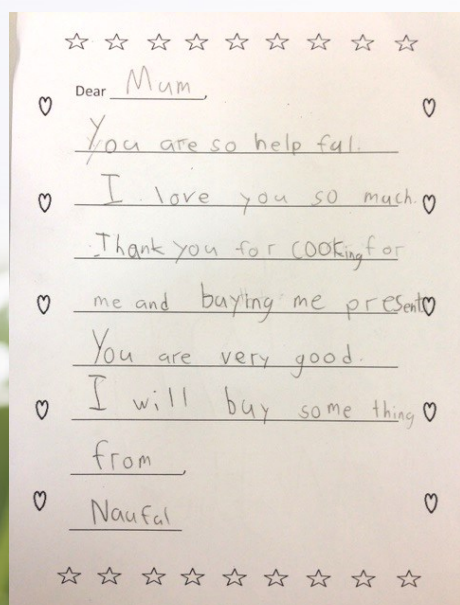 Dear Mum,
You are so help ful.
I love you so much.
Thank you for cooking for
me and buying me present
You are very good.
I will buy some thing
from,
Naufal